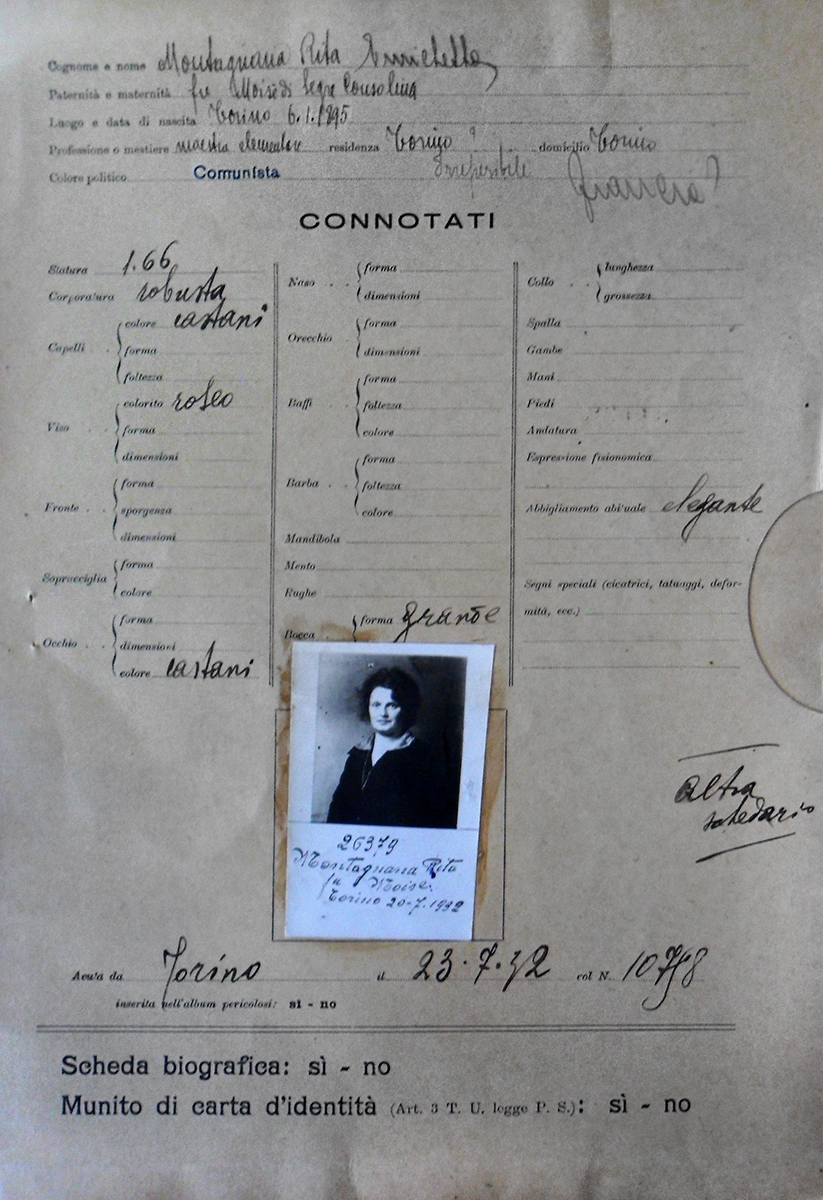 Cognome e nome Montagnana Rita Enrichetta
Paternità e maternità fu Moisè di Segre Consolina
Luogo e data di nascita Torino 6.1.1895
Professione o mestiere maestra elementare residenza Torino? domicilio Torino
Irreperibile
Colore politico Comunista
CONNOTATI
Statura 1.66
Corporatura robusta
Capelli
colore castani
forma
foltezza
Viso
colorito roseo
forma
dimensioni
Fronte
forma
sporgenza
dimensioni
Sopracciglia
forma
colore
Occhio
forma
dimensioni
colore castani
Naso
forma
dimensioni
Orecchio
forma
dimensioni
Baffi
forma
foltezza
colore
Barba
forma
foltezza
colore
Mandibola
Mento
Rughe
Bocca forma grande
Collo
lunghezza
grossezza
Spalla
Gambe
Mani
Piedi
Andatura
Espressione fisionomica
Abbigliamento abi'uale elegante
Segni speciali (cicatrici, tatuaggi, defor-
mità, ecc.)
altro
schedario
26379
Montagnana Rita
fu Moise.
Torino 20-7.1932
Avuta da Torino il 23.7.32 col N. 10798
inserita nell'album pericolosi: sì - no
Scheda biografica: sì - no
Munito di carta d'identità (Art. 3 T. U. legge P. S.): sì - no